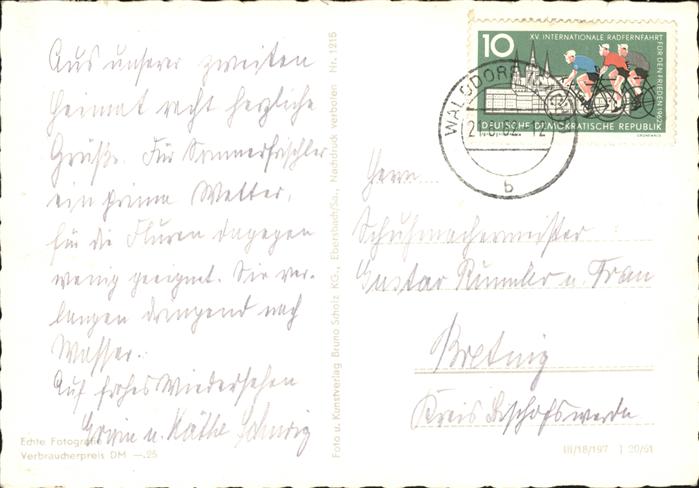 Aus unserer zweiten
Heimat recht herzliche
Grüße. Für Sommerfrischler
ein prima Wetter,
für die Fluren dagegen
wenig geeignet. Sie ver-
langen dringend nach
Wasser.
Auf frohes Wiedersehen
Erwin u. Käthe
Echte Fotografie
Verbraucherpreis DM —.25
Foto u. Kunstverlag Bruno Scholz KG., Ebersbach/Sa., Nachdruck verboten Nr. 1215
10
XV. INTERNATIONALE RADFERNFAHRT
FÜR DEN FRIEDEN 1962
DEUTSCHE DEMOKRATISCHE REPUBLIK
WALSDORF
b
Herrn
Schuhmachermeister
Gustav Rummler u. Frau
Bretnig
Kreis Bischofswerda
III/18/197 J 20/61